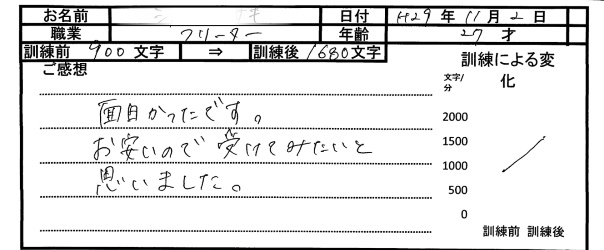 お名前 日付 H29 年 11 月 2 日
職業 フリーター 年齢 27 才
訓練前 900 文字 ⇒ 訓練後 1680 文字
ご感想
訓練による変化
文字/分
面白かったです。
お安いので受けてみたいと
思いました。
2000
1500
1000
500
0
訓練前 訓練後